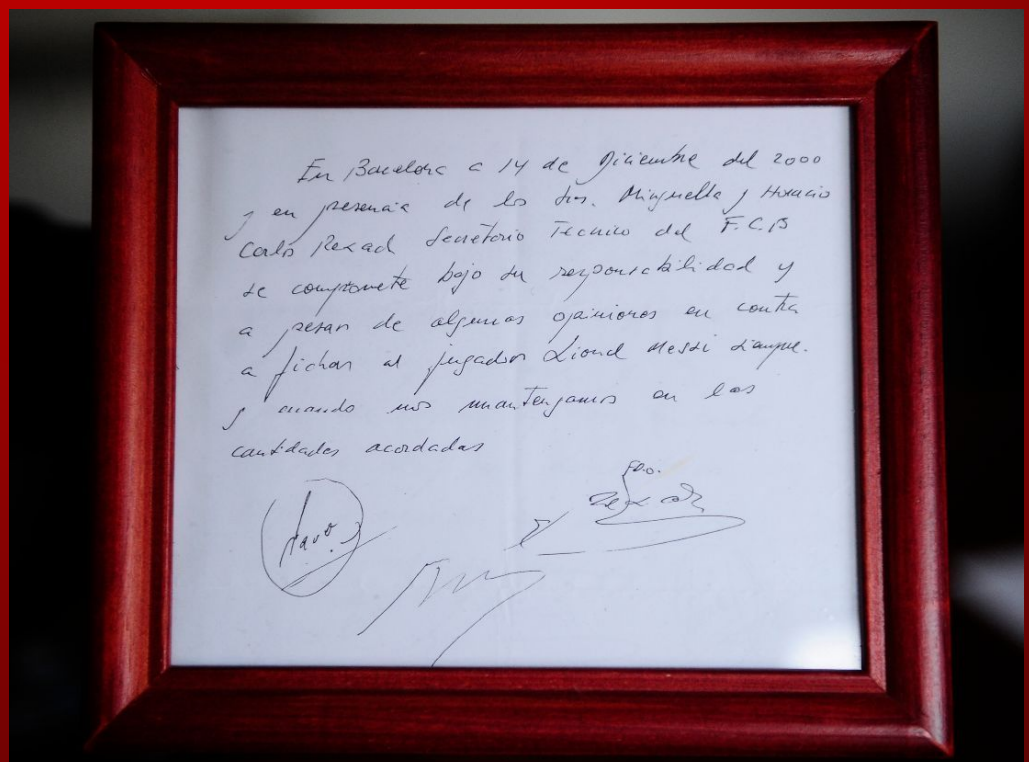 En Barcelona a 14 de Diciembre del 2000
y en presencia de los Srs. Minguella y Horacio
Carles Rexach Secretario Tecnico del F.C.B
se compromete bajo su responsabilidad y
a pesar de algunas opiniones en contra
a fichar al jugador Lionel Messi siempre.
y cuando nos mantengamos en las
cantidades acordadas
Fdo.
Rexach